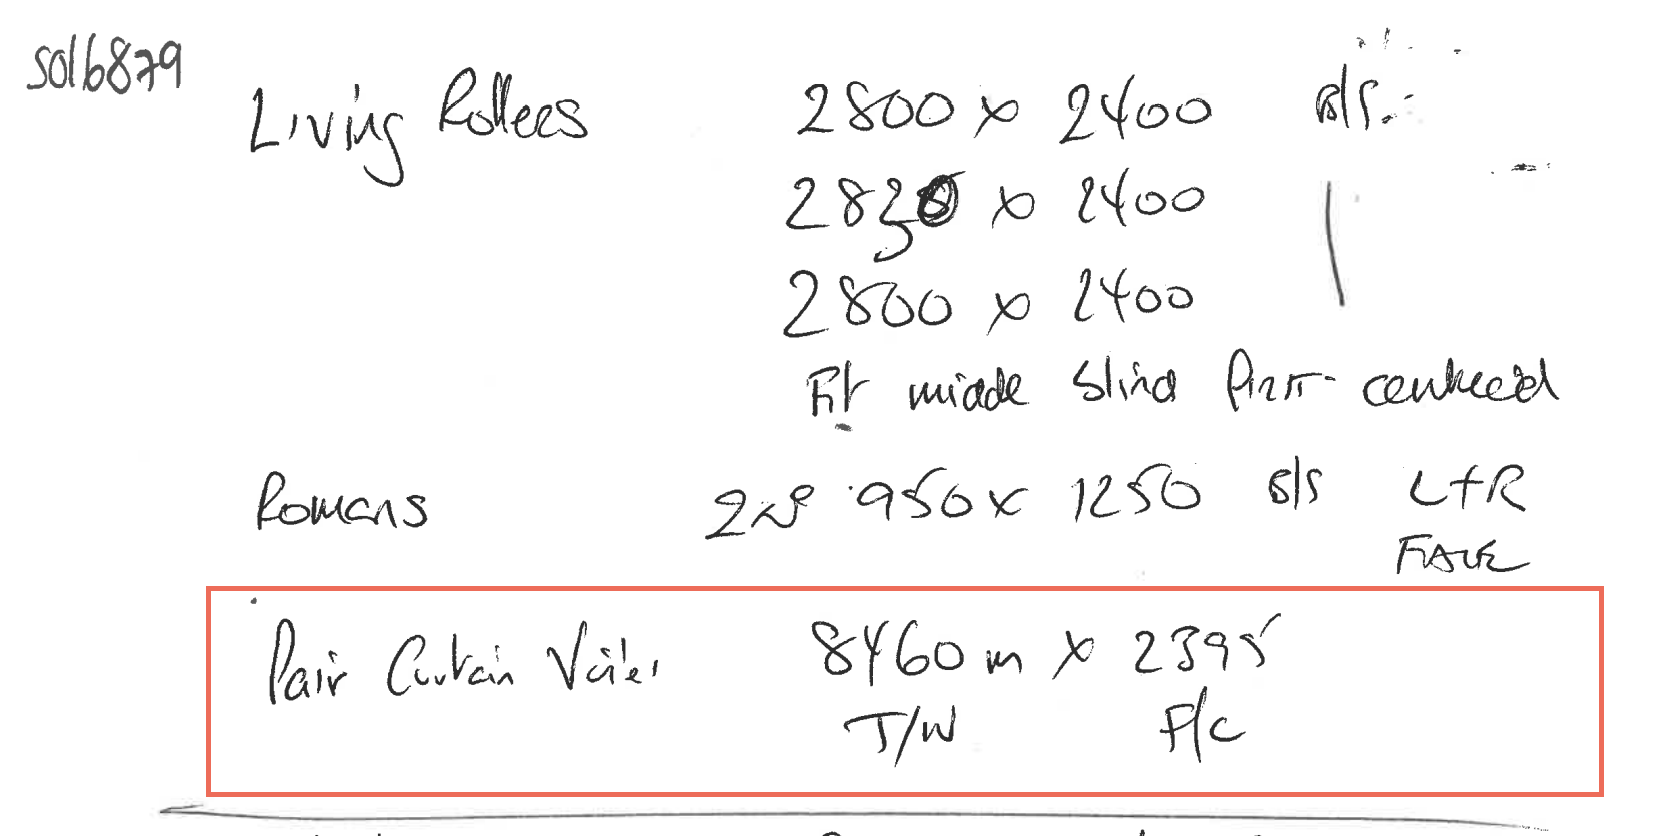 SO16879
Living Rollers 2800 x 2400 B/S.
2830 x 2400
2800 x 2400
Fit middle blind first - centred
Romans 2No 950 x 1250 B/S L+R
FACE
Pair Curtain Voiles 8460m x 2395
T/W F/C